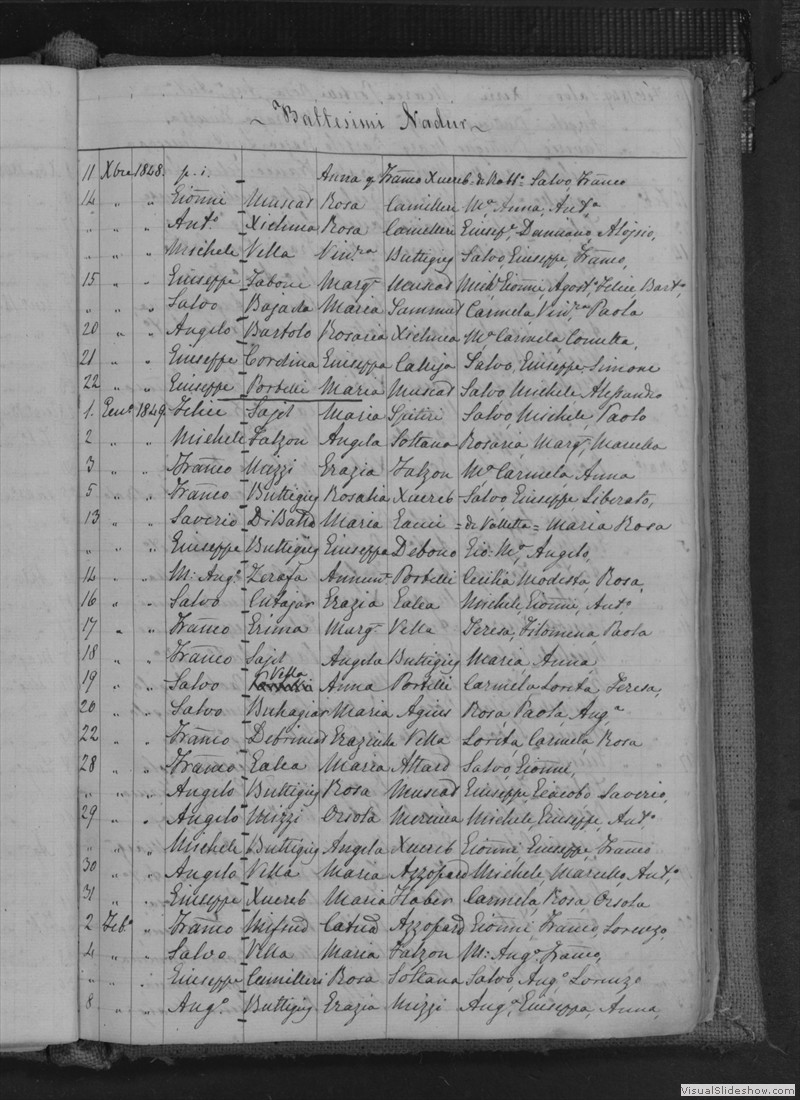 Battesimi Nadur
11 Xbre 1848. p. i. Anna q Franco Xuereb = di Rabto Salvo, Franco
14 " " Gionni Muscat Rosa Camilleri Ma Anna, Anta
" " " Anto Xichma Rosa Camilleri Giusepe, Damiano Aloisio,
" " " Michele Vella Vinza Buttigieg Salvo Giuseppe, Franco,
15 " " Giuseppe Tabone Margta Muscat Michl Gionni, Agosto Felice Barto
" " " Salvo Bajada Maria Sammut Carmela, Vinza Paola
20 " " Angelo Bartolo Rosaria Xichma Ma Carmela Concetta
21 " " Giuseppe Cordina Giuseppa Calleja Salvo, Giuseppe Simone
22 " " Giuseppe Portelli Maria Muscat Salvo Michele Alessandro
1. Genro 1849. Felice Said Maria Spiteri Salvo, Michele, Paolo
2 " " Michele Falzon Angela Soltana Rosaria, Margta,
3 " " Franco Mizzi Grazia Falzon Ma Carmela Anna
5 " " Franco Buttigieg Rosalia Xuereb Salvo, Giuseppe Liberato,
13 " " Saverio DiBatta Maria Gauci = di Valletta = Maria Rosa
" " " Giuseppe Buttigieg Giuseppa Debono Gio Ma, Angelo,
14 " " M: Ango Zerafa Annunta Portelli Cecilia Modesta, Rosa,
16 " " Salvo Cutajar Grazia Galea Michele Gionni, Anto
17 " " Franco Grima Margta Vella Teresa, Filomena, Paola
18 " " Franco Said Angela Buttigieg Maria Anna,
19 " " Salvo Vella Anna Portelli Carmela Lorita, Teresa,
20 " " Salvo Buhagiar Maria Agius Rosa Paola, Anga
22 " " Franco Debrincat Grazinha Vella Lorita Carmela, Rosa
28 " " Franco Galea Maria Attard Salvo Gionni,
" " " Angelo Buttigieg Rosa Muscat Giuseppe, Giacobo Saverio,
29 " " Angelo Mizzi Orsola Mercieca Michele, Giuseppe, Anto
" " " Michele Buttigieg Angela Xuereb Gionni Giuseppe, Franco
30 " " Angelo Vella Maria Azzopard Michele, Marcello, Anto,
31 " " Giuseppe Xuereb Maria Haber Carmela, Rosa, Orsola
2 Febo " Franco Mifsud Catnа Azzopard Gionni, Franco, Lorenzo,
4 " " Salvo Vella Maria Falzon M: Ango, Franco,
" " " Giuseppe Camilleri Rosa Soltana Salvo, Ango Lorenzo
8 " " Ango Buttigieg Grazia Mizzi Anga, Giuseppa, Anna,
VisualSlideshow.com